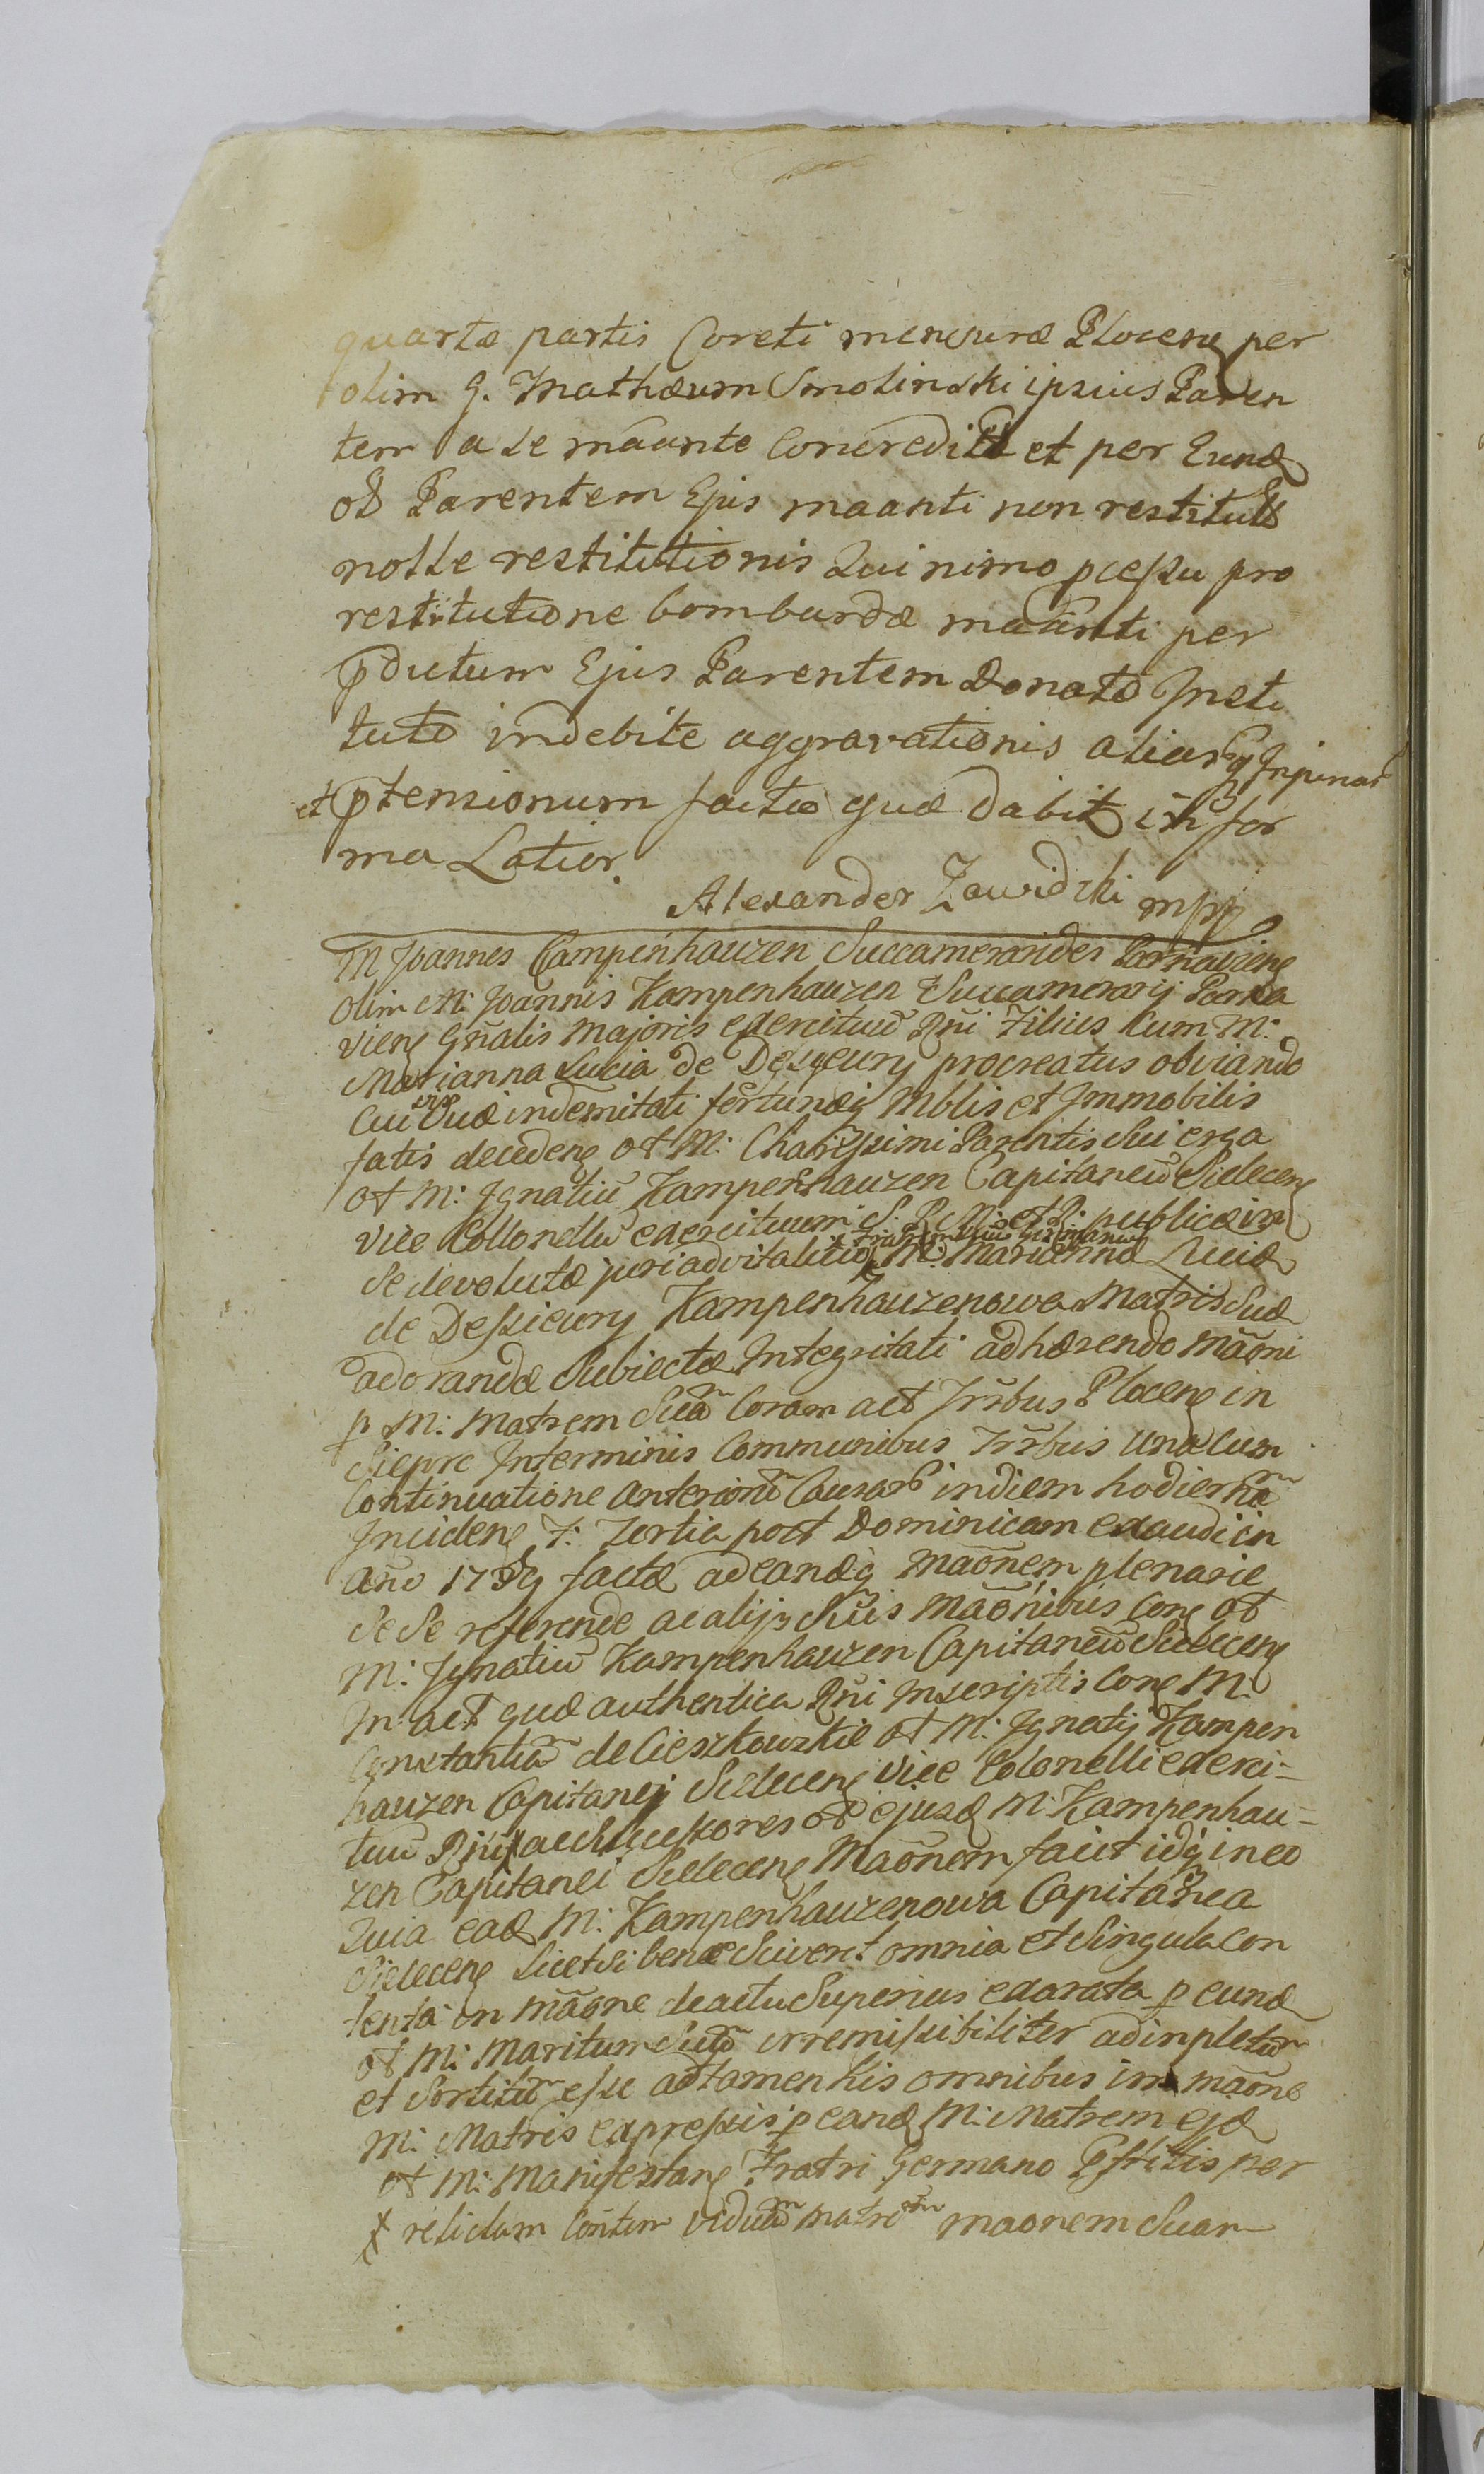 quartæ partis Coreti mensuræ Plocen per
olim G. Mathæum Smolinski ipsius Paren
tem a se maante Concredit et per Eund
ol Parentem Ejus maanti non restitut
nolle restitutionis Quinimo pcessu pro
restitutione bombardæ maanti per
pdictum Ejus Parentem Donatæ Insti
tuto indebite aggravationis aliarq Injuriar
et ptensionum factæ quæ dabit in for
ma Latior.
Alexander Zawidzki mpp
M Joannes Campenhauzen Succamerarides Parnavien
olim M: Joannis Kampenhauzen Succamerarij Parna
vien Gnalis Majoris exercituu Rni Filius cum M:
Marianna Lucia de Desieury procreatus obviando
suæ indemnitati fortunæq Mblis et Immobilis
fatis deceden ol M: Charissimi Parentis Sui erga
ol M: Ignatiu Kampenhauzen Capitaneu Sielecen
vice Collonellu exercituum S. R. Mtis et R: publicæ in
Fratrem Suu Germanu
se devolutæ juri advitalitio M: Mariannæ Luciæ
de Dessieury Kampenhauzenowa Matris Suæ
adorandæ Subiectæ Integritati adhærendo maoni
p M: Matrem Sua Coram act Trrbus Plocen in
Sierpc Interminis Communibus Trrbus una cum
Continuatione anterioru Causar indiem hodierna
Inciden F: Tertia post Dominicam exaudi in
ano 1759 factæ ad eandq maonem plenarie
se se referendo ac alijs Suis maonibus Con ol
M: Ignatiu Kampenhauzen Capitaneu Sielecen
In act quæ authentica Rni Inscriptis Con M:
Constantia de Cieszkowskie ol M: Ignatij Kampen
hauzen Capitanej Sielecen vice Colonelli exerci-
tuu Rni ac Successores ol ejusd M: Kampenhau-
zen Capitanei Sielecen Maonem facit idq in eo
Quia ead M: Kampenhauzenowa Capitanea
Sielecen licet si bene Sciverit omnia et Singula con
tenta in maone de actu Superius exarata p eund
ol M: Maritum Suu irremissibiliter adinpletu
et Sortitu esse attamen his omnibus in maone
M: Matris expressis p eand M: Matrem ejd
ol M: Manifestan Fratri Germano Pstitis per
relictam viduam maonem Suam